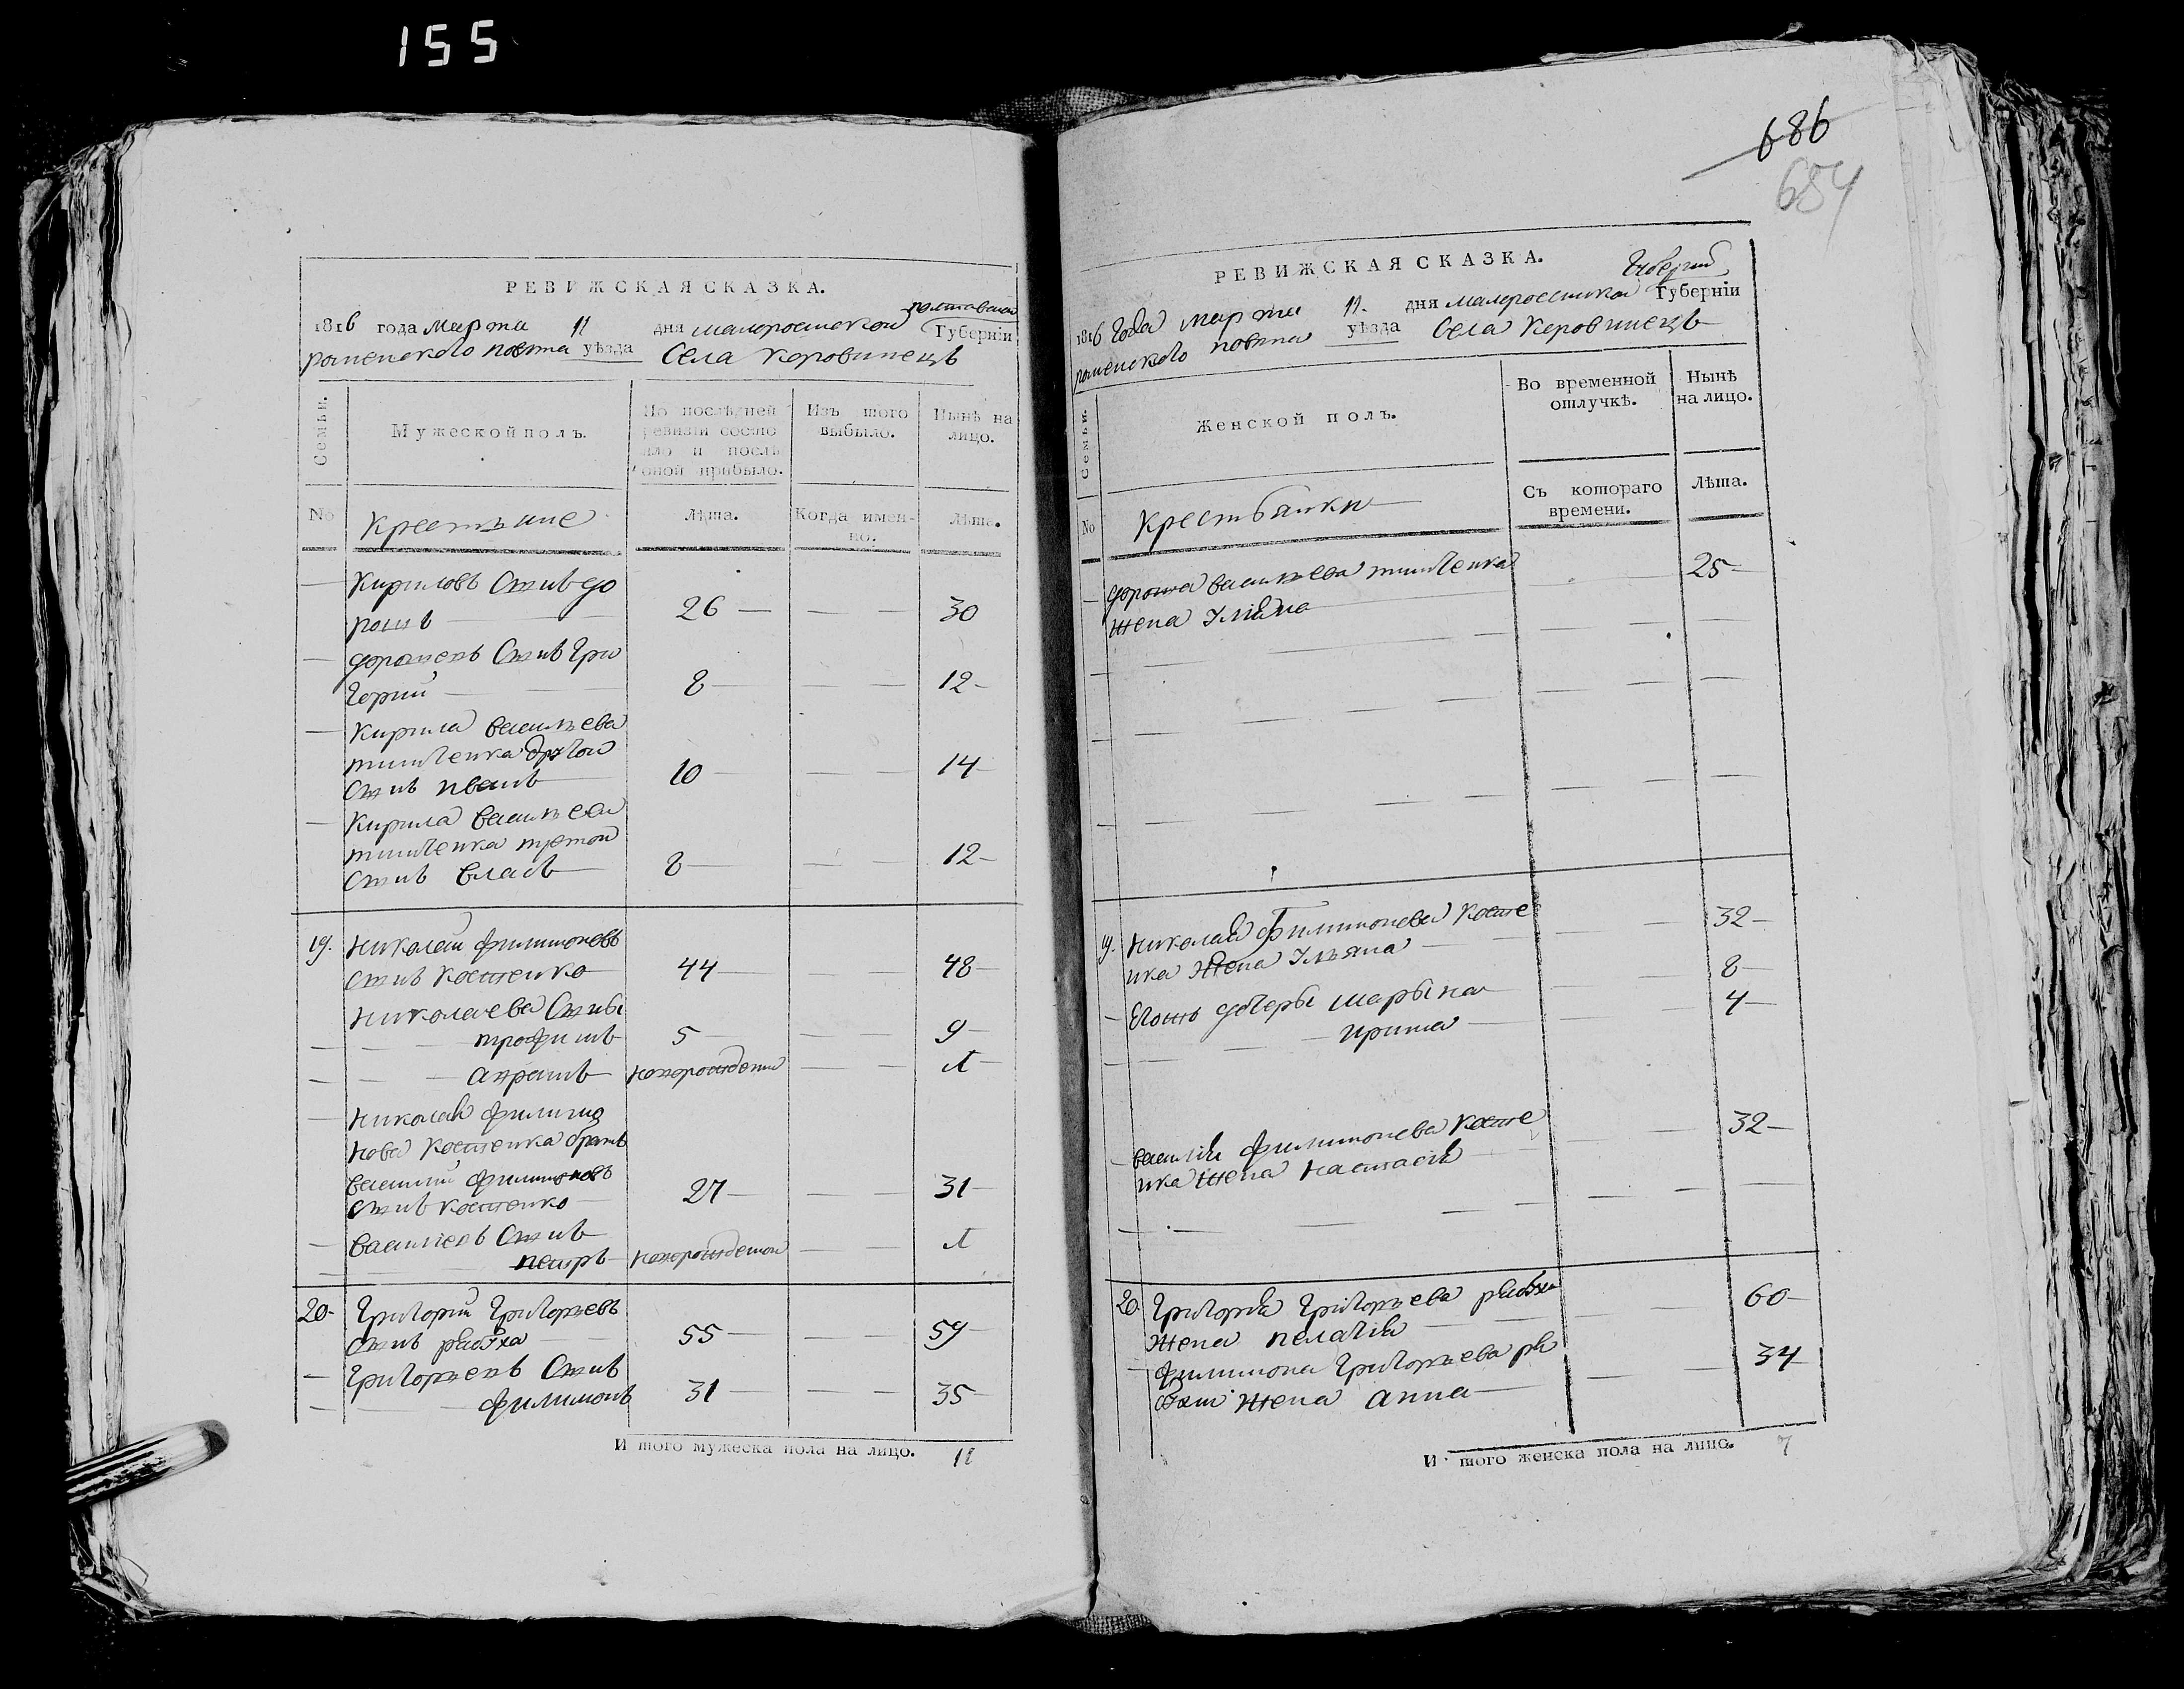 155
686
654
РЕВИЖСКАЯ СКАЗКА.
полтавской
1816 года марта 11 дня малоросийской Губерніи
роменского повета уѣзда Села Коровинецъ
Семьи.
Мужеской полъ.
По послѣдней ревизіи состояло и послѣ оной прибыло.
Изъ того выбыло.
Нынѣ на лицо.
No
Крестьяне
Лѣта.
Когда именно.
Лѣта.
Кириловъ Синъ до
рошъ 26 30
дорошенъ Синъ Гри
горий 8 12
Кирила васильева
тимченка другой
Синъ иванъ 10 14
Кирила васильева
тимченка третой
Синъ власъ 8 12
19. Николай филимоновъ
Синъ костенко 44 48
Николаева Сины
трофимъ 5 9
Николай филимо
нова Костенка братъ
василий филимоновъ
Синъ костенко 27 31
василіевъ Синъ
петръ новорожденой
20 Григорий Григорьевъ
Синъ 55 59
Григорьевъ Синъ
филимонъ 31 35
И того мужеска пола на лицо.
РЕВИЖСКАЯ СКАЗКА.
1816 Года марта 11. дня малоросийской Губерніи
роменского повета уѣзда Села Коровинецъ
Семьи.
Женской полъ.
Во временной отлучкѣ.
Нынѣ на лицо.
No
Крестьянки
Съ котораго времени.
Лѣта.
дороша васильева тимченка 25
жена Уліяна
19. Николая Филимонова Косте 32
нка Жена Ульяна
Егожъ дочеры марына 8
ирина 4
василія филимонова Косте 32
нка жена настасія
20. Григорія Григорьева 60
Жена пелагія
филимона Григорьева 34
жена анна
И того женска пола на лицо. 7